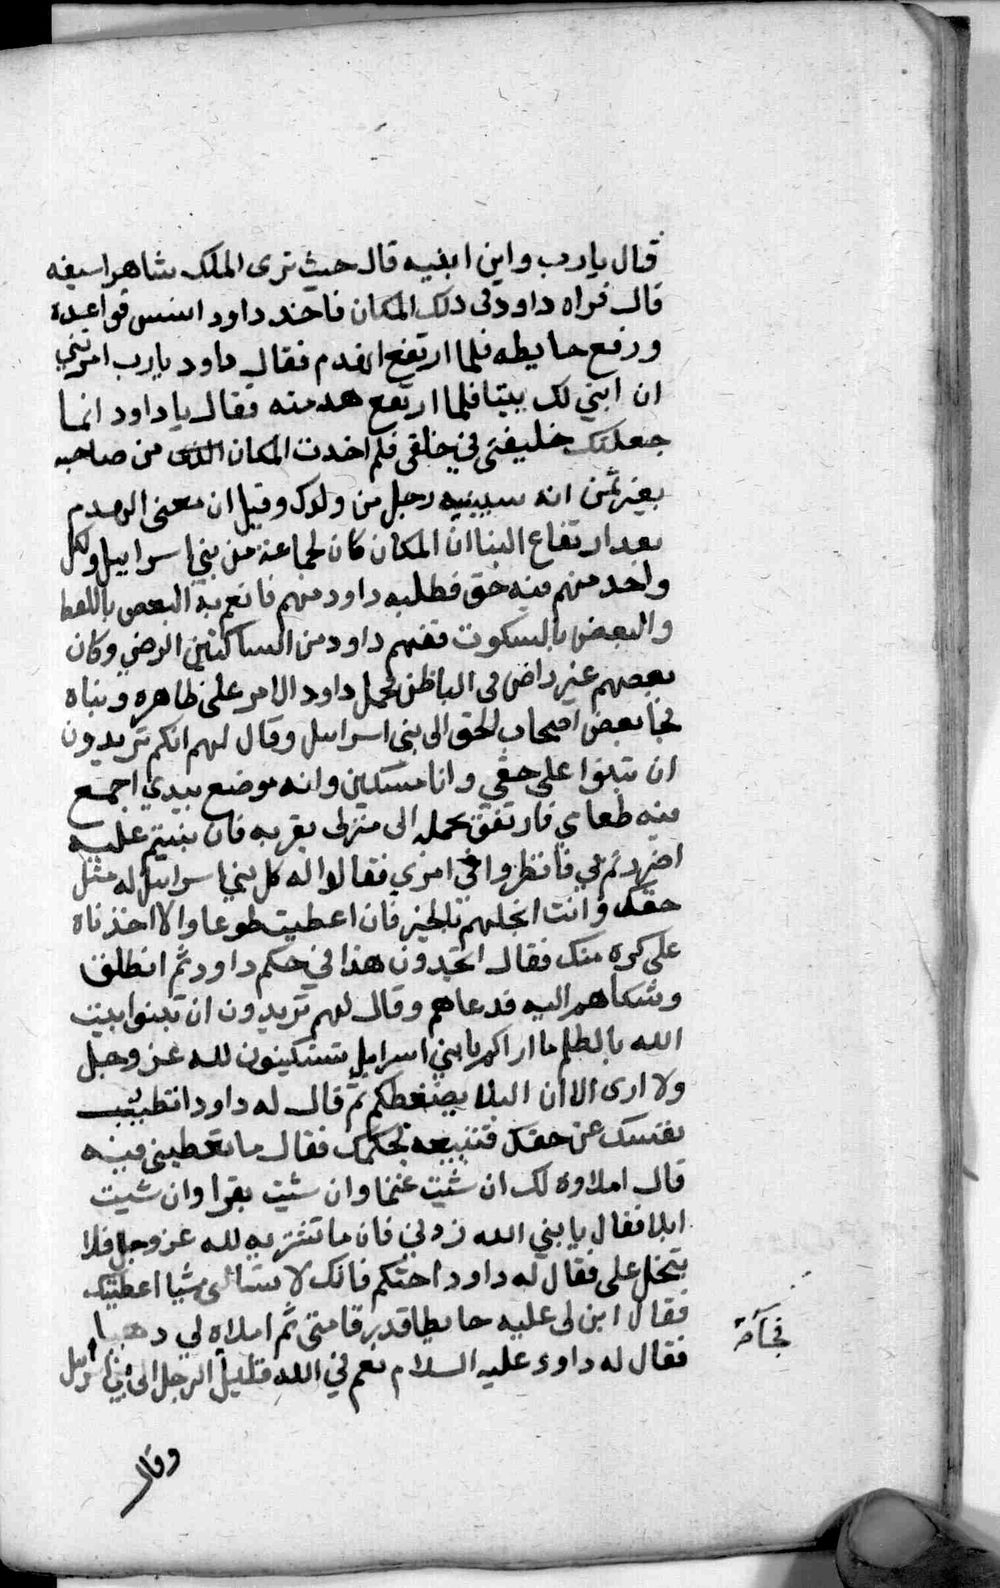 قال يارب واين ابنيه قال حيث ترى الملك شاهرا سيفه
قال فراه داود فى دلك المكان فاخد داود اسس قواعده
ورفع حايطه فلما ارتفع انهدم فقال داود يارب امرتني
ان ابني لك بيتا فلما ارتفع هدمته فقال ياداود انما
جعلتك خليفتى في خلقى فلم اخدت المكان الذى من صاحبه
بغير ثمن انه سيبنيه رجل من ولدك وقيل ان معنى الهدم
بعد ارتفاع البنا ان المكان كان لجماعة من بني اسراييل ولكل
واحد منهم فيه حق فطلبه داود منهم فانعم به البعض باللفظ
والبعض بالسكوت ففهم داود من الساكتين الرضي وكان
بعضهم غير راض فى الباطن فحمل داود الامر على ظاهره وبناه
فجا بعض اصحاب الحق الى بنى اسراييل وقال لهم انكم تريدون
ان تبنوا على حقي وانا مسكين وانه موضع بيدي اجمع
فيه طعامي فارتفق بحمله الى منزلى بقربه فان بنيتم عليه
اضررتم بي فانظروا في امري فقالوا له كل بني اسراييل له مثل
حقك وانت ابخلهم بالخير فان اعطيت طوعا والا اخذناه
على كره منك فقال اتجدون هذا في حكم داود ثم انطلق
وشكاهم اليه فدعاهم وقال لهم تريدون ان تبنوا بيت
الله بالظلم ما اراكم يابني اسراييل تستكينون لله عز وجل
ولا ارى الا ان البلا يضغطكم ثم قال له داود اتطيب
نفسك عن حقك فتبيعه بحكمك فقال ما تعطيني فيه
قال املاوه لك ان شيت غنما وان شيت بقرا وان شيت
ابلا فقال يا نبي الله زدني فان ما تشتريه لله عز وجل فلا
تبخل على فقال له داود احتكم فانك لا تسالنى شيا اعطيتك
فقال ابن لى عليه حايطا قدر قامتى ثم املاه لي دهبا
فقال له داود عليه السلام نعم في الله قليل الرجل الى بني اسراييل
وقال